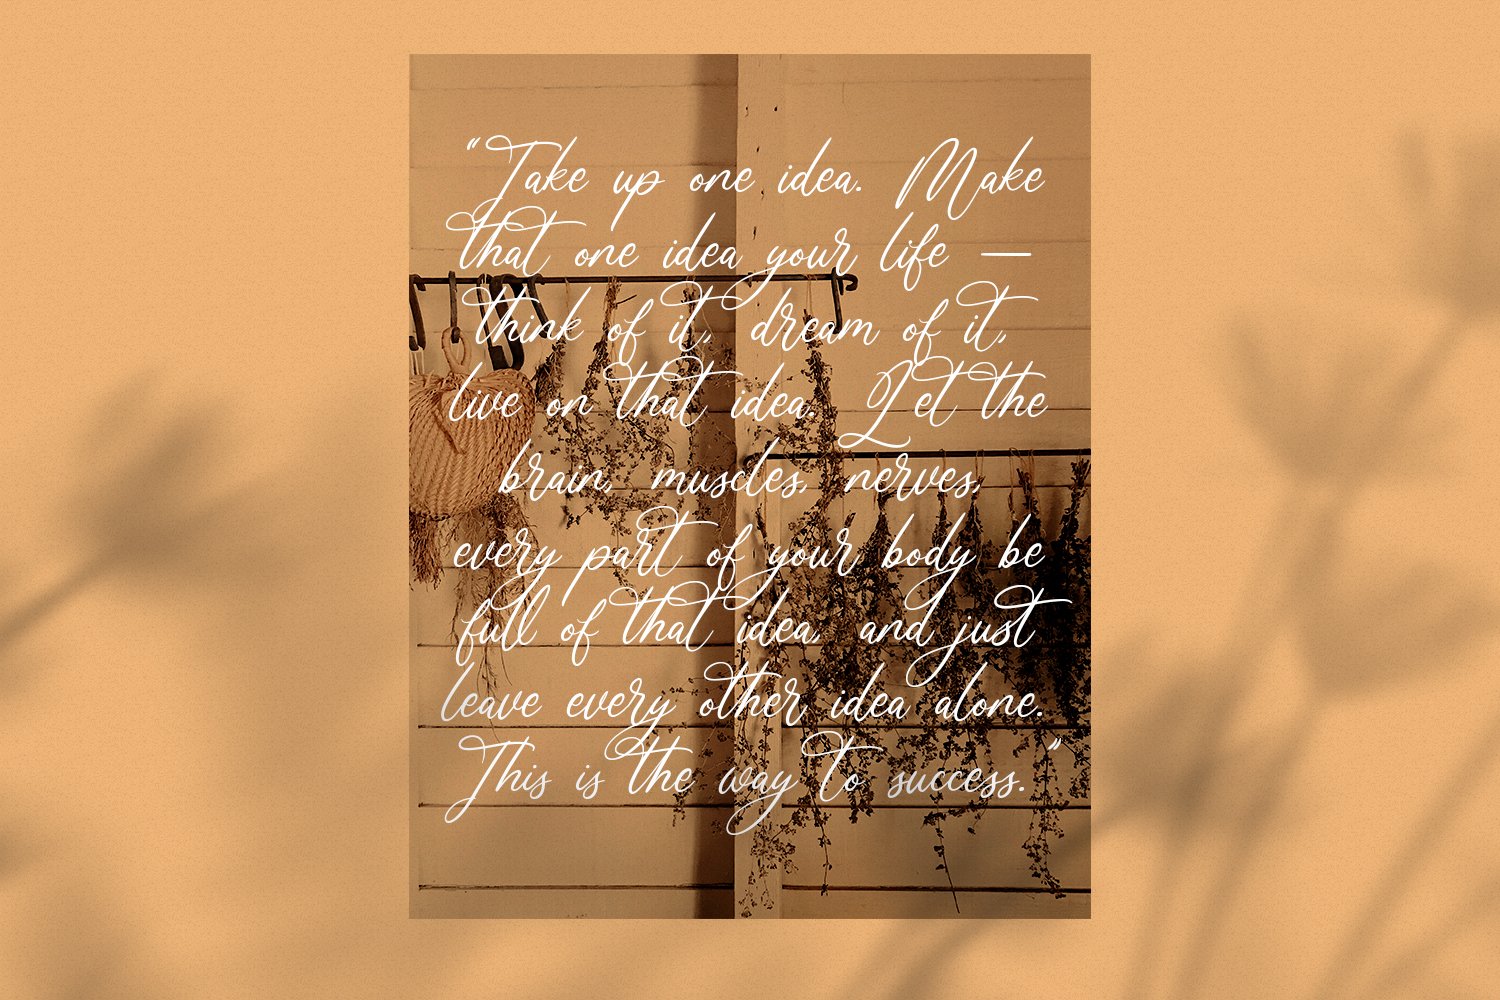 “Take up one idea. Make
that one idea your life —
think of it, dream of it,
live on that idea. Let the
brain, muscles, nerves,
every part of your body be
full of that idea, and just
leave every other idea alone.
This is the way to success.”